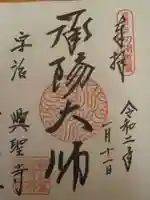 奉拝
令和二年
月十一日
承陽大師
宇治
興聖寺